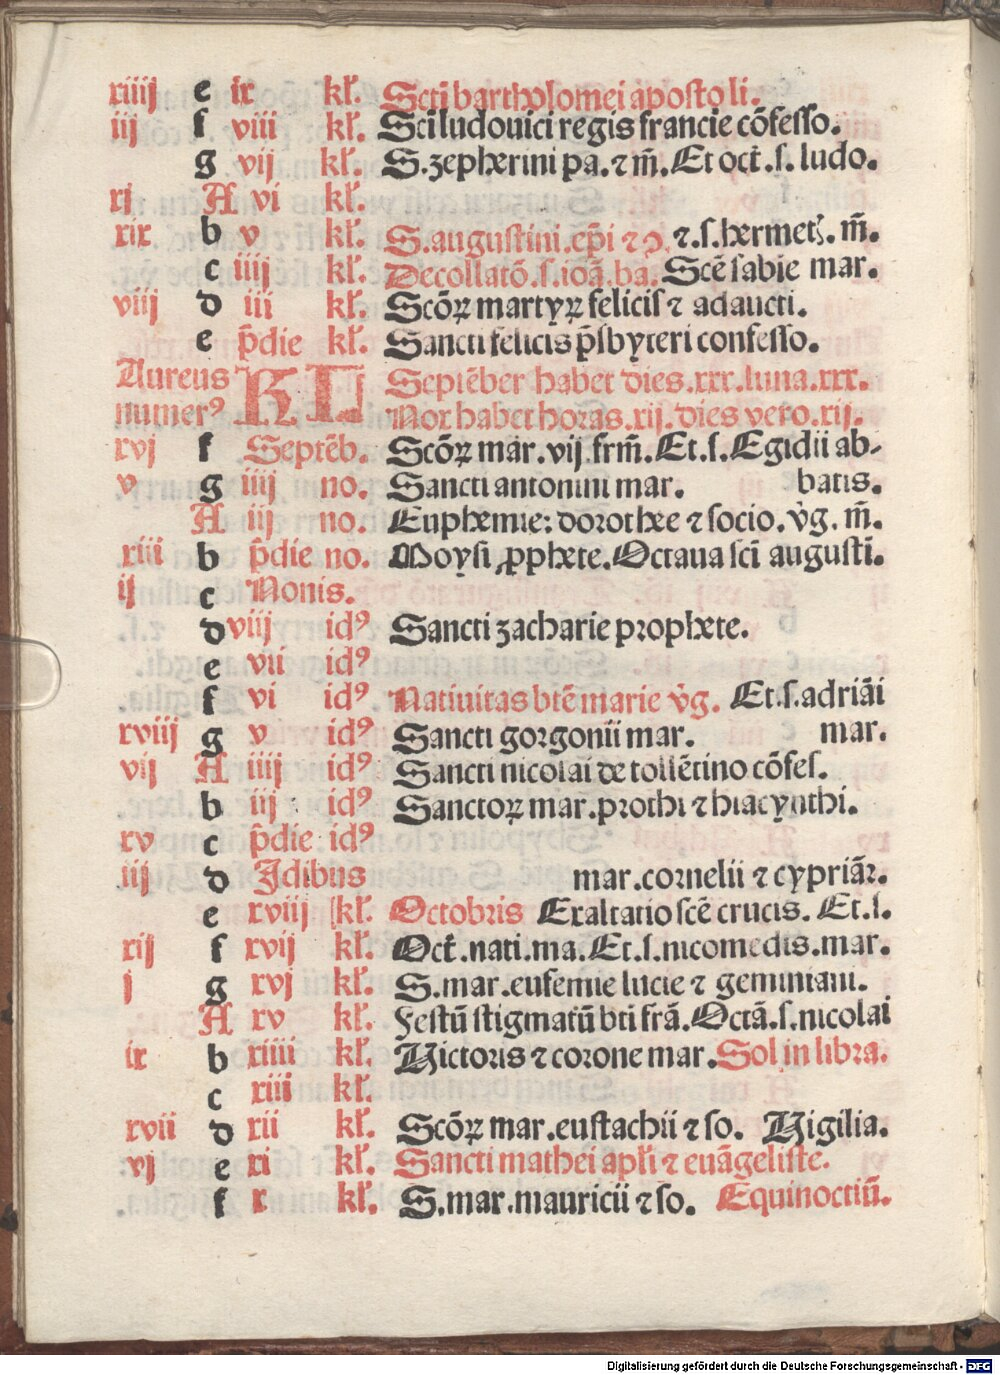 xiiij e ix kł. Scti bartholomei aposto li.
iij f viii kł. Sci ludouici regis francie cōfesso.
g vij kł. S. zepherini pa. ⁊ m̄. Et oct̄. s. ludo.
xi A vi kł.
xix b v kł. S. augustini. ep̄i ⁊ ꝯ. ⁊. s. hermet̄ꝭ. m̄.
c iiij kł. Decollatō. s. ioā. ba. Scē sabie mar.
viij d iii kł. Scōꝝ martyꝝ felicis ⁊ adaucti.
e p̄die kł. Sancti felicis p̄sbyteri confesso.
Aureus KL Septēber habet dies. xxx. luna. xxx.
numerꝰ Nox habet horas. xij. dies vero. xij.
xvj f Septēb. Scōꝝ mar. vij. frm̄. Et. s. Egidii ab-
v g iiij no. Sancti antonini mar. batis.
A iij no. Euphemie: dorothee ⁊ socio. v̄g. m̄.
xiii b p̄die no. Moysi ꝓphete. Octaua sci augusti.
ij c Nonis.
d viij idꝰ Sancti zacharie prophete.
e vii idꝰ
f vi idꝰ Natiuitas btē marie v̄g. Et. s. adriāi
xviij g v idꝰ Sancti gorgonii mar. mar.
vij A iiij idꝰ Sancti nicolai de tollētino cōfes.
b iij idꝰ Sanctoꝝ mar. prothi ⁊ hiacynthi.
xv c p̄die idꝰ
iij d Idibus mar. cornelii ⁊ cypriāꝛ.
e xviij kł. Octobris Exaltatio scē crucis. Et. s.
xij f xvij kł. Oct̄. nati. ma. Et. s. nicomedis. mar.
j g xvj kł. S. mar. eufemie lucie ⁊ geminiani.
A xv kł. Festū stigmatū bti frā. Octā. s. nicolai
ix b xiiii kł. Victoris ⁊ corone mar. Sol in libra.
c xiii kł.
xvii d xii kł. Scōꝝ mar. eustachii ⁊ so. Vigilia.
vj e xi kł. Sancti mathei apłi ⁊ euāgeliste.
f x kł. S. mar. mauricii ⁊ so. Equinoctiū.
Digitalisierung gefördert durch die Deutsche Forschungsgemeinschaft - DFG